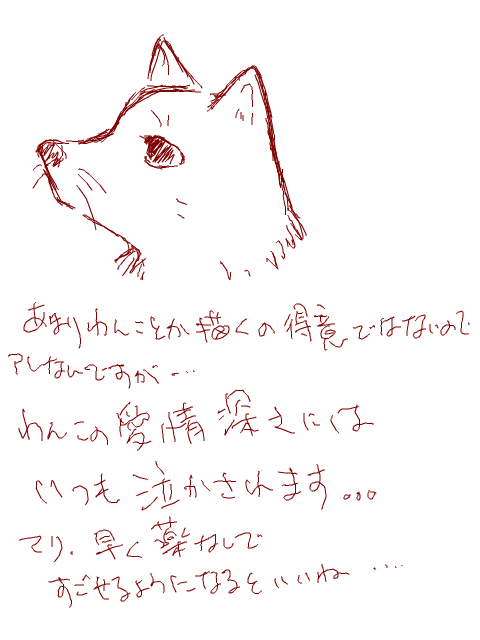 あまりわんことか描くの得意ではないので
アレなんですが…
わんこの愛情深さには
いつも泣かされます...
てり、早く薬なしで
すごせるようになるといいね ....